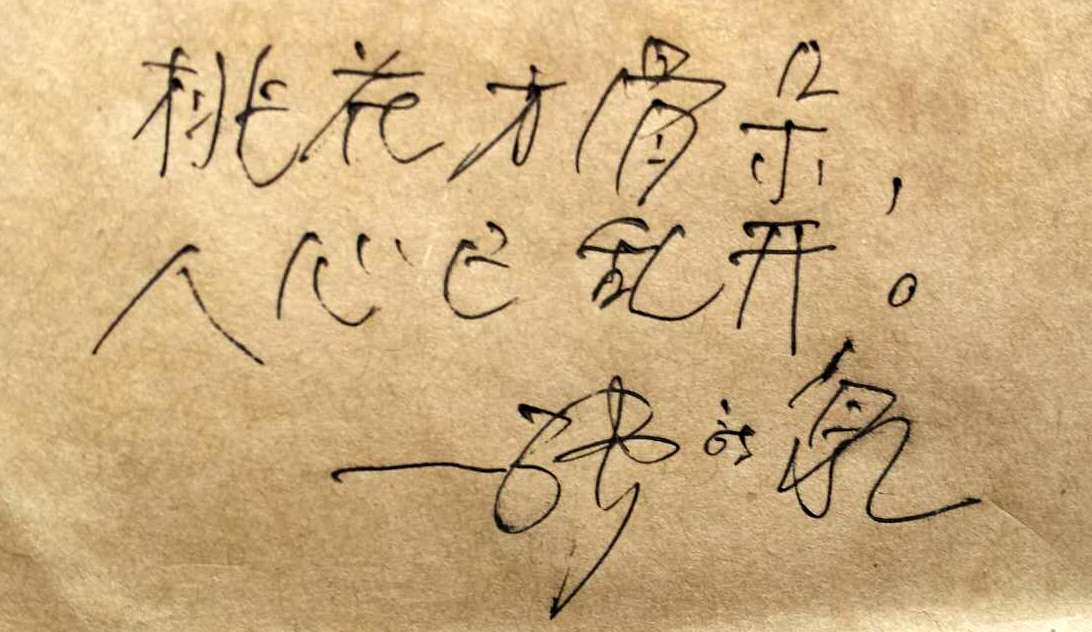 桃花才骨朵，
人心已乱开。